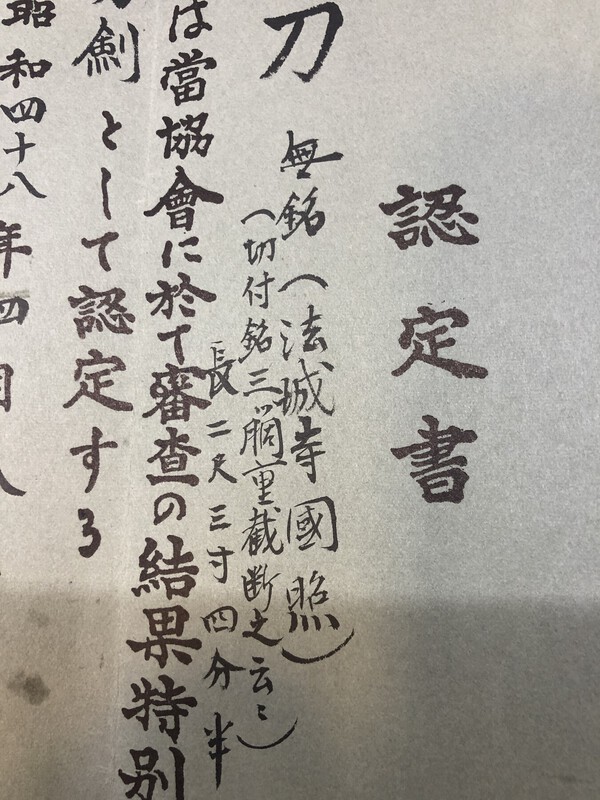 認定書
刀
無銘(法城寺國照)
(切付銘三ツ胴重截断之云々)
長二尺三寸四分半
は當協會に於て審査の結果特別
劍として認定する
昭和四十八年四月